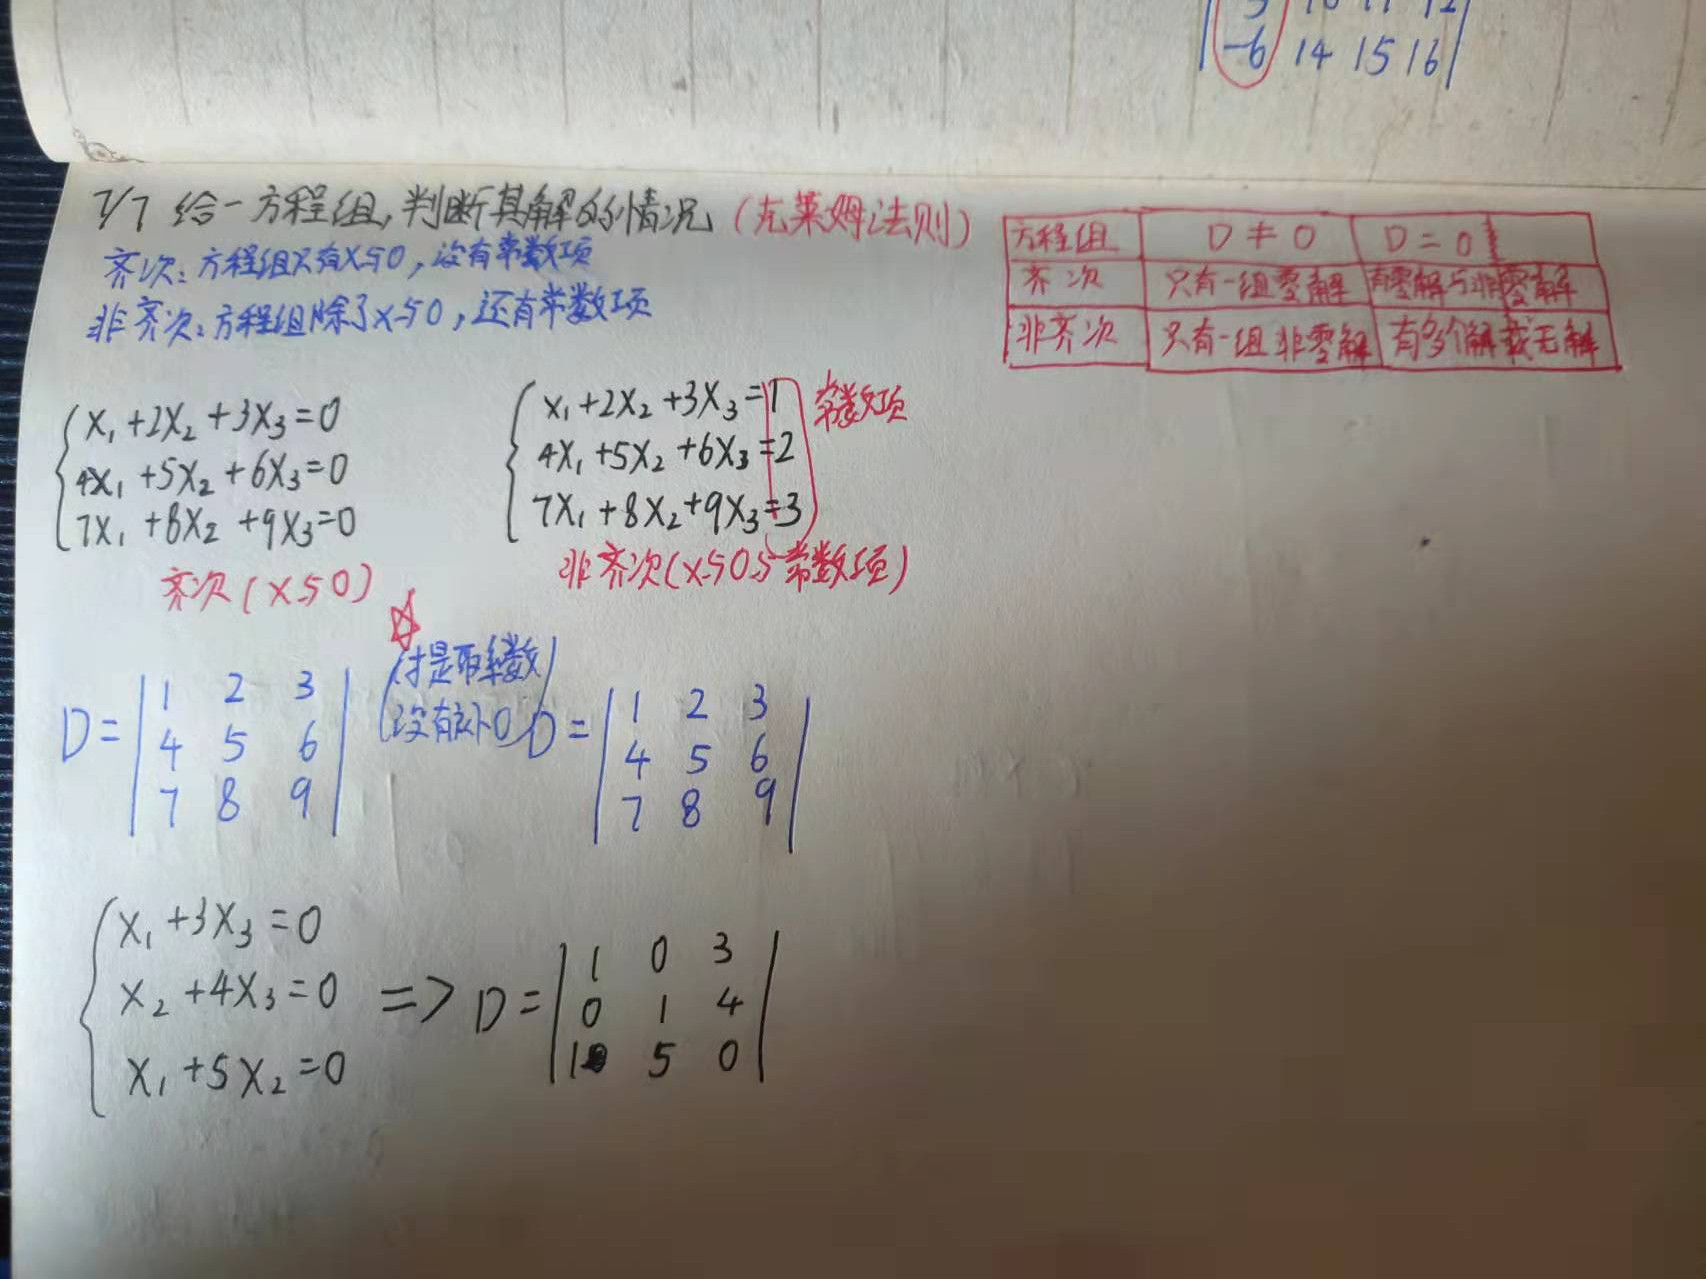 -6 14 15 16
7/7 给一方程组,判断其解的情况(克莱姆法则)
齐次:方程组只有x与0,没有常数项
非齐次:方程组除了x与0,还有常数项
方程组 D≠0 D=0
齐次 只有一组零解 有零解与非零解
非齐次 只有一组非零解 有多个解或无解
x₁+2x₂+3x₃=0
4x₁+5x₂+6x₃=0
7x₁+8x₂+9x₃=0
齐次(x与0)
x₁+2x₂+3x₃=1
4x₁+5x₂+6x₃=2
7x₁+8x₂+9x₃=3
常数项
非齐次(x与0与常数项)
D= 1 2 3
4 5 6
7 8 9
系数
没有补0
D= 1 2 3
4 5 6
7 8 9
x₁+3x₃=0
x₂+4x₃=0
x₁+5x₂=0
=> D= 1 0 3
0 1 4
1 5 0